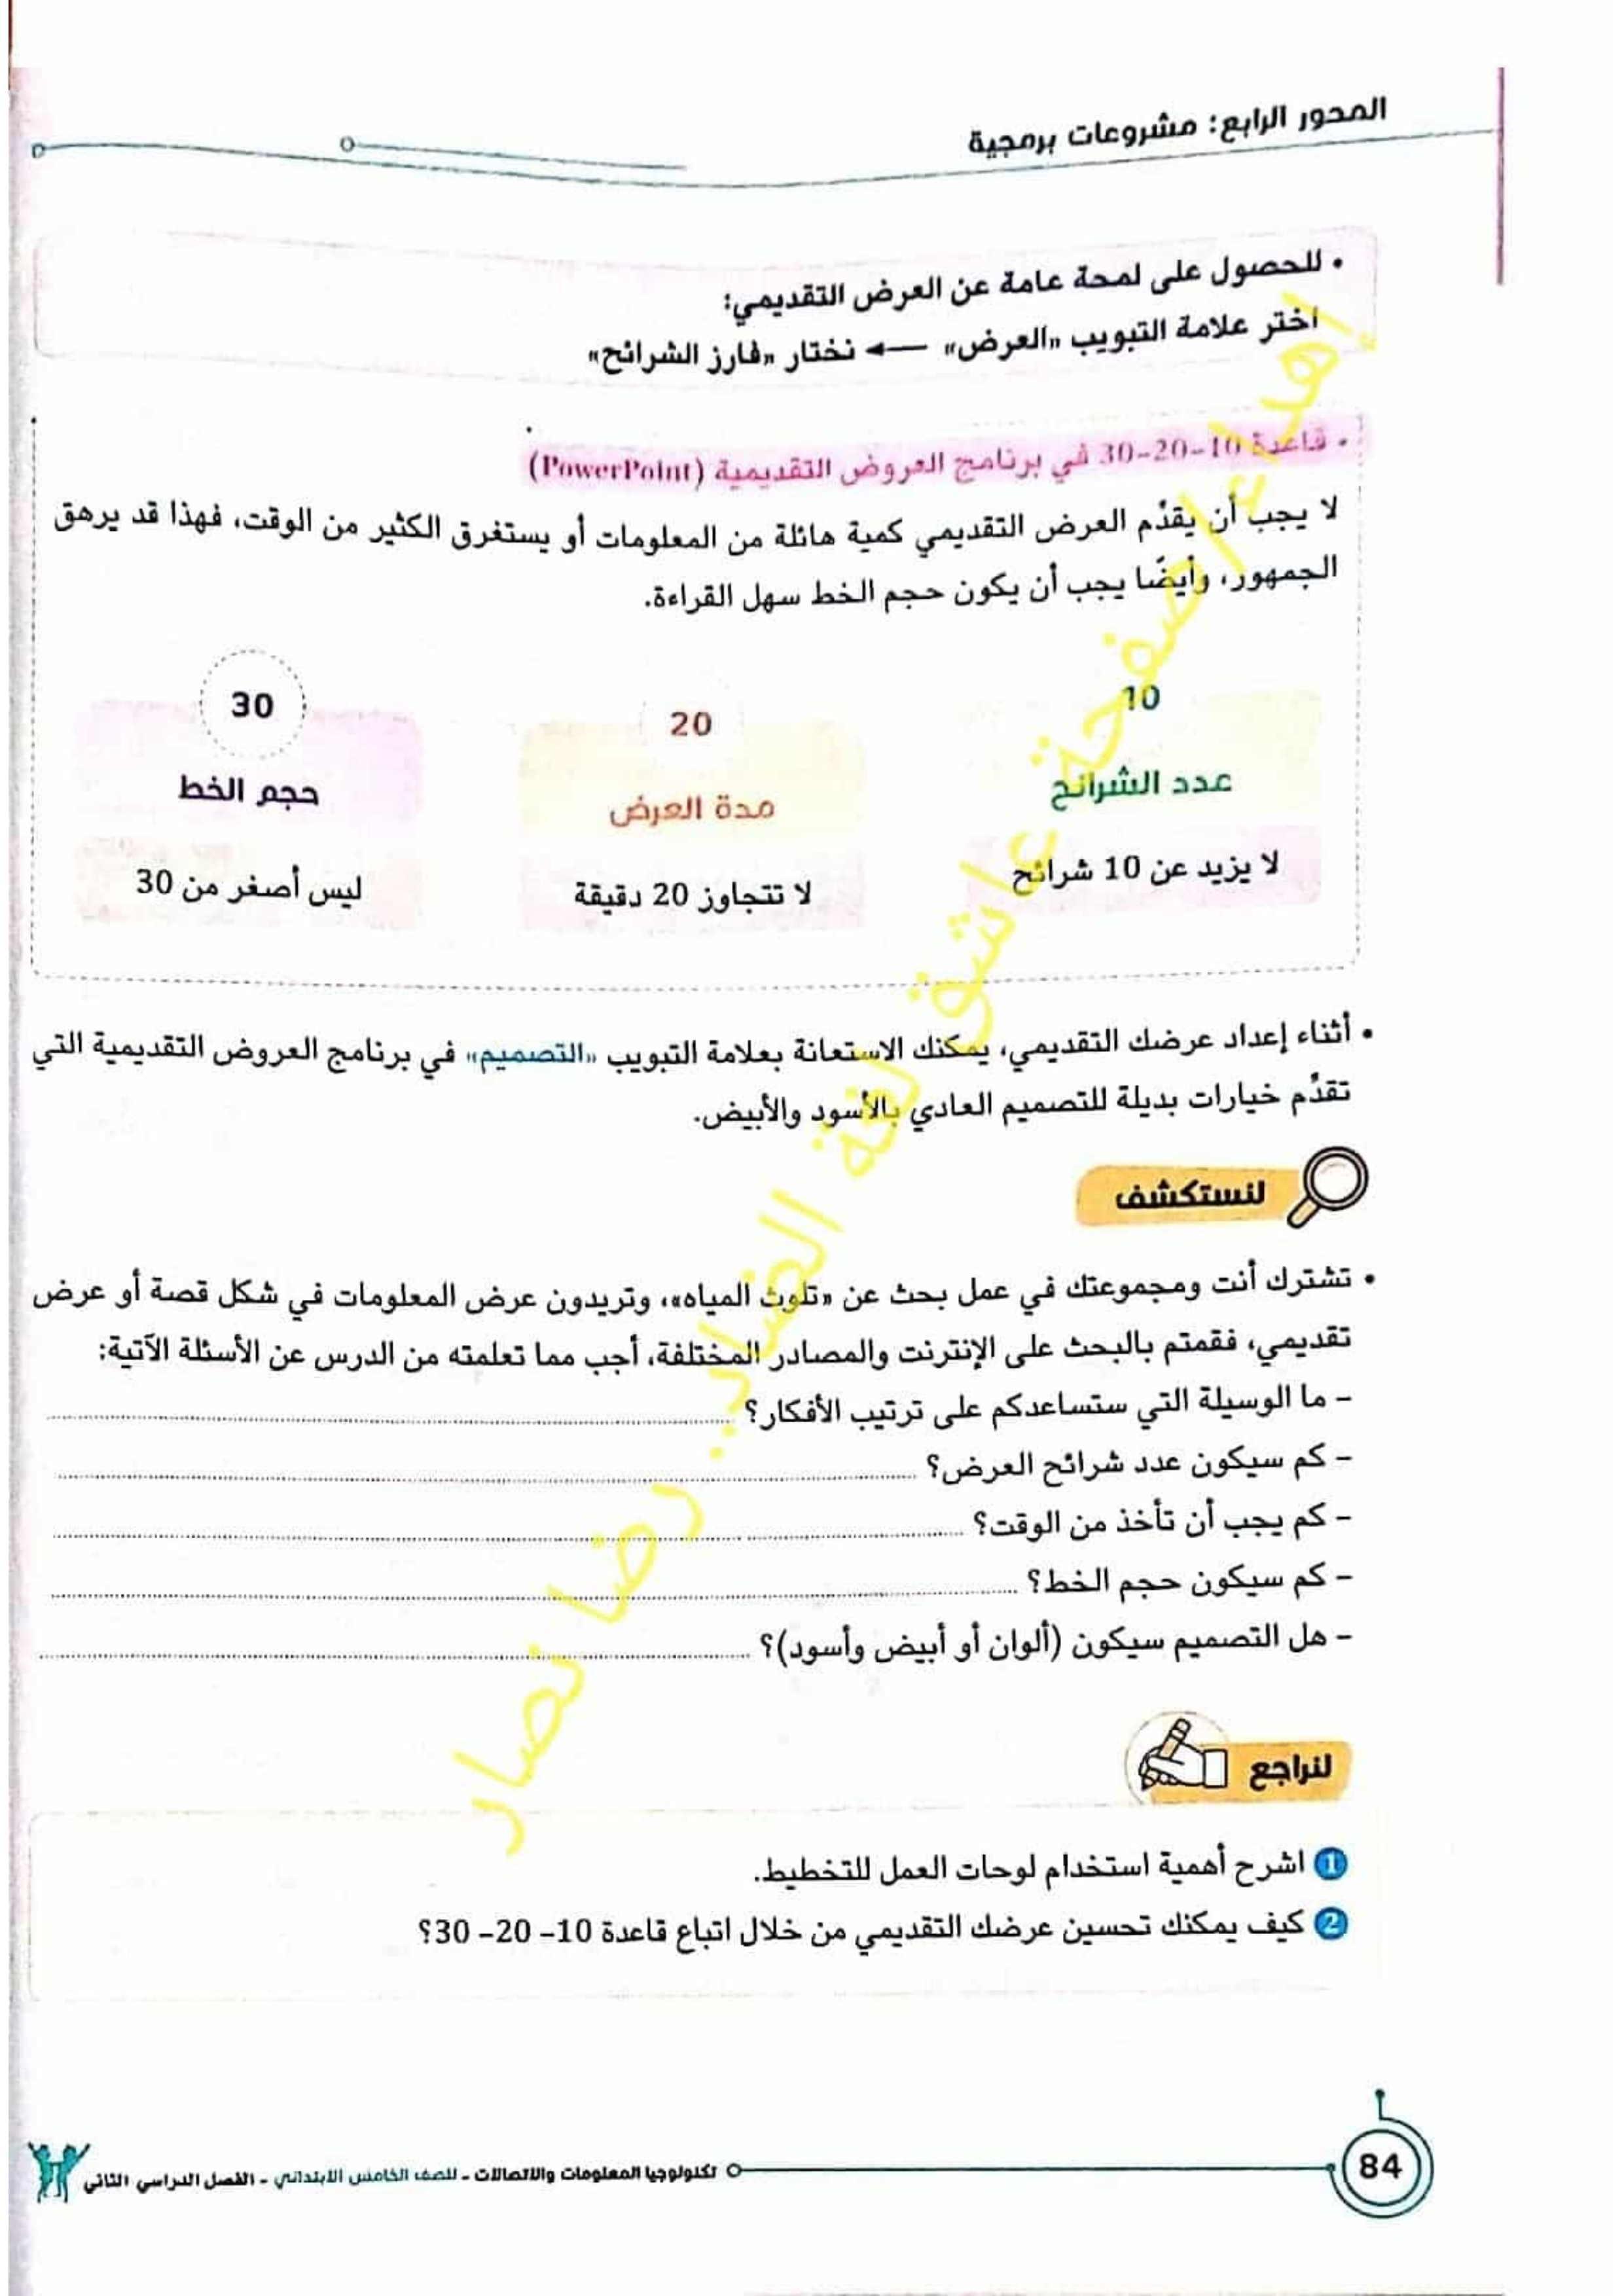 المحور الرابع: مشروعات برمجية
• للحصول على لمحة عامة عن العرض التقديمي:
اختر علامة التبويب «العرض» ← نختار «فارز الشرائح»
• قاعدة 10-20-30 في برنامج العروض التقديمية (PowerPoint)
لا يجب أن يقدِّم العرض التقديمي كمية هائلة من المعلومات أو يستغرق الكثير من الوقت، فهذا قد يرهق
الجمهور، وأيضًا يجب أن يكون حجم الخط سهل القراءة.
10
20
30
عدد الشرائح
مدة العرض
حجم الخط
لا يزيد عن 10 شرائح
لا تتجاوز 20 دقيقة
ليس أصغر من 30
• أثناء إعداد عرضك التقديمي، يمكنك الاستعانة بعلامة التبويب «التصميم» في برنامج العروض التقديمية التي
تقدِّم خيارات بديلة للتصميم العادي بالأسود والأبيض.
لنستكشف
• تشترك أنت ومجموعتك في عمل بحث عن «تلوث المياه»، وتريدون عرض المعلومات في شكل قصة أو عرض
تقديمي، فقمتم بالبحث على الإنترنت والمصادر المختلفة، أجب مما تعلمته من الدرس عن الأسئلة الآتية:
- ما الوسيلة التي ستساعدكم على ترتيب الأفكار؟
- كم سيكون عدد شرائح العرض؟
- كم يجب أن تأخذ من الوقت؟
- كم سيكون حجم الخط؟
- هل التصميم سيكون (ألوان أو أبيض وأسود)؟
لنراجع
1 اشرح أهمية استخدام لوحات العمل للتخطيط.
2 كيف يمكنك تحسين عرضك التقديمي من خلال اتباع قاعدة 10- 20- 30؟
84
تكنولوجيا المعلومات والاتصالات - للصف الخامس الابتدائي - الفصل الدراسي الثاني
إهداء صفحة عاشق لغة الضاد.. رضا نصار